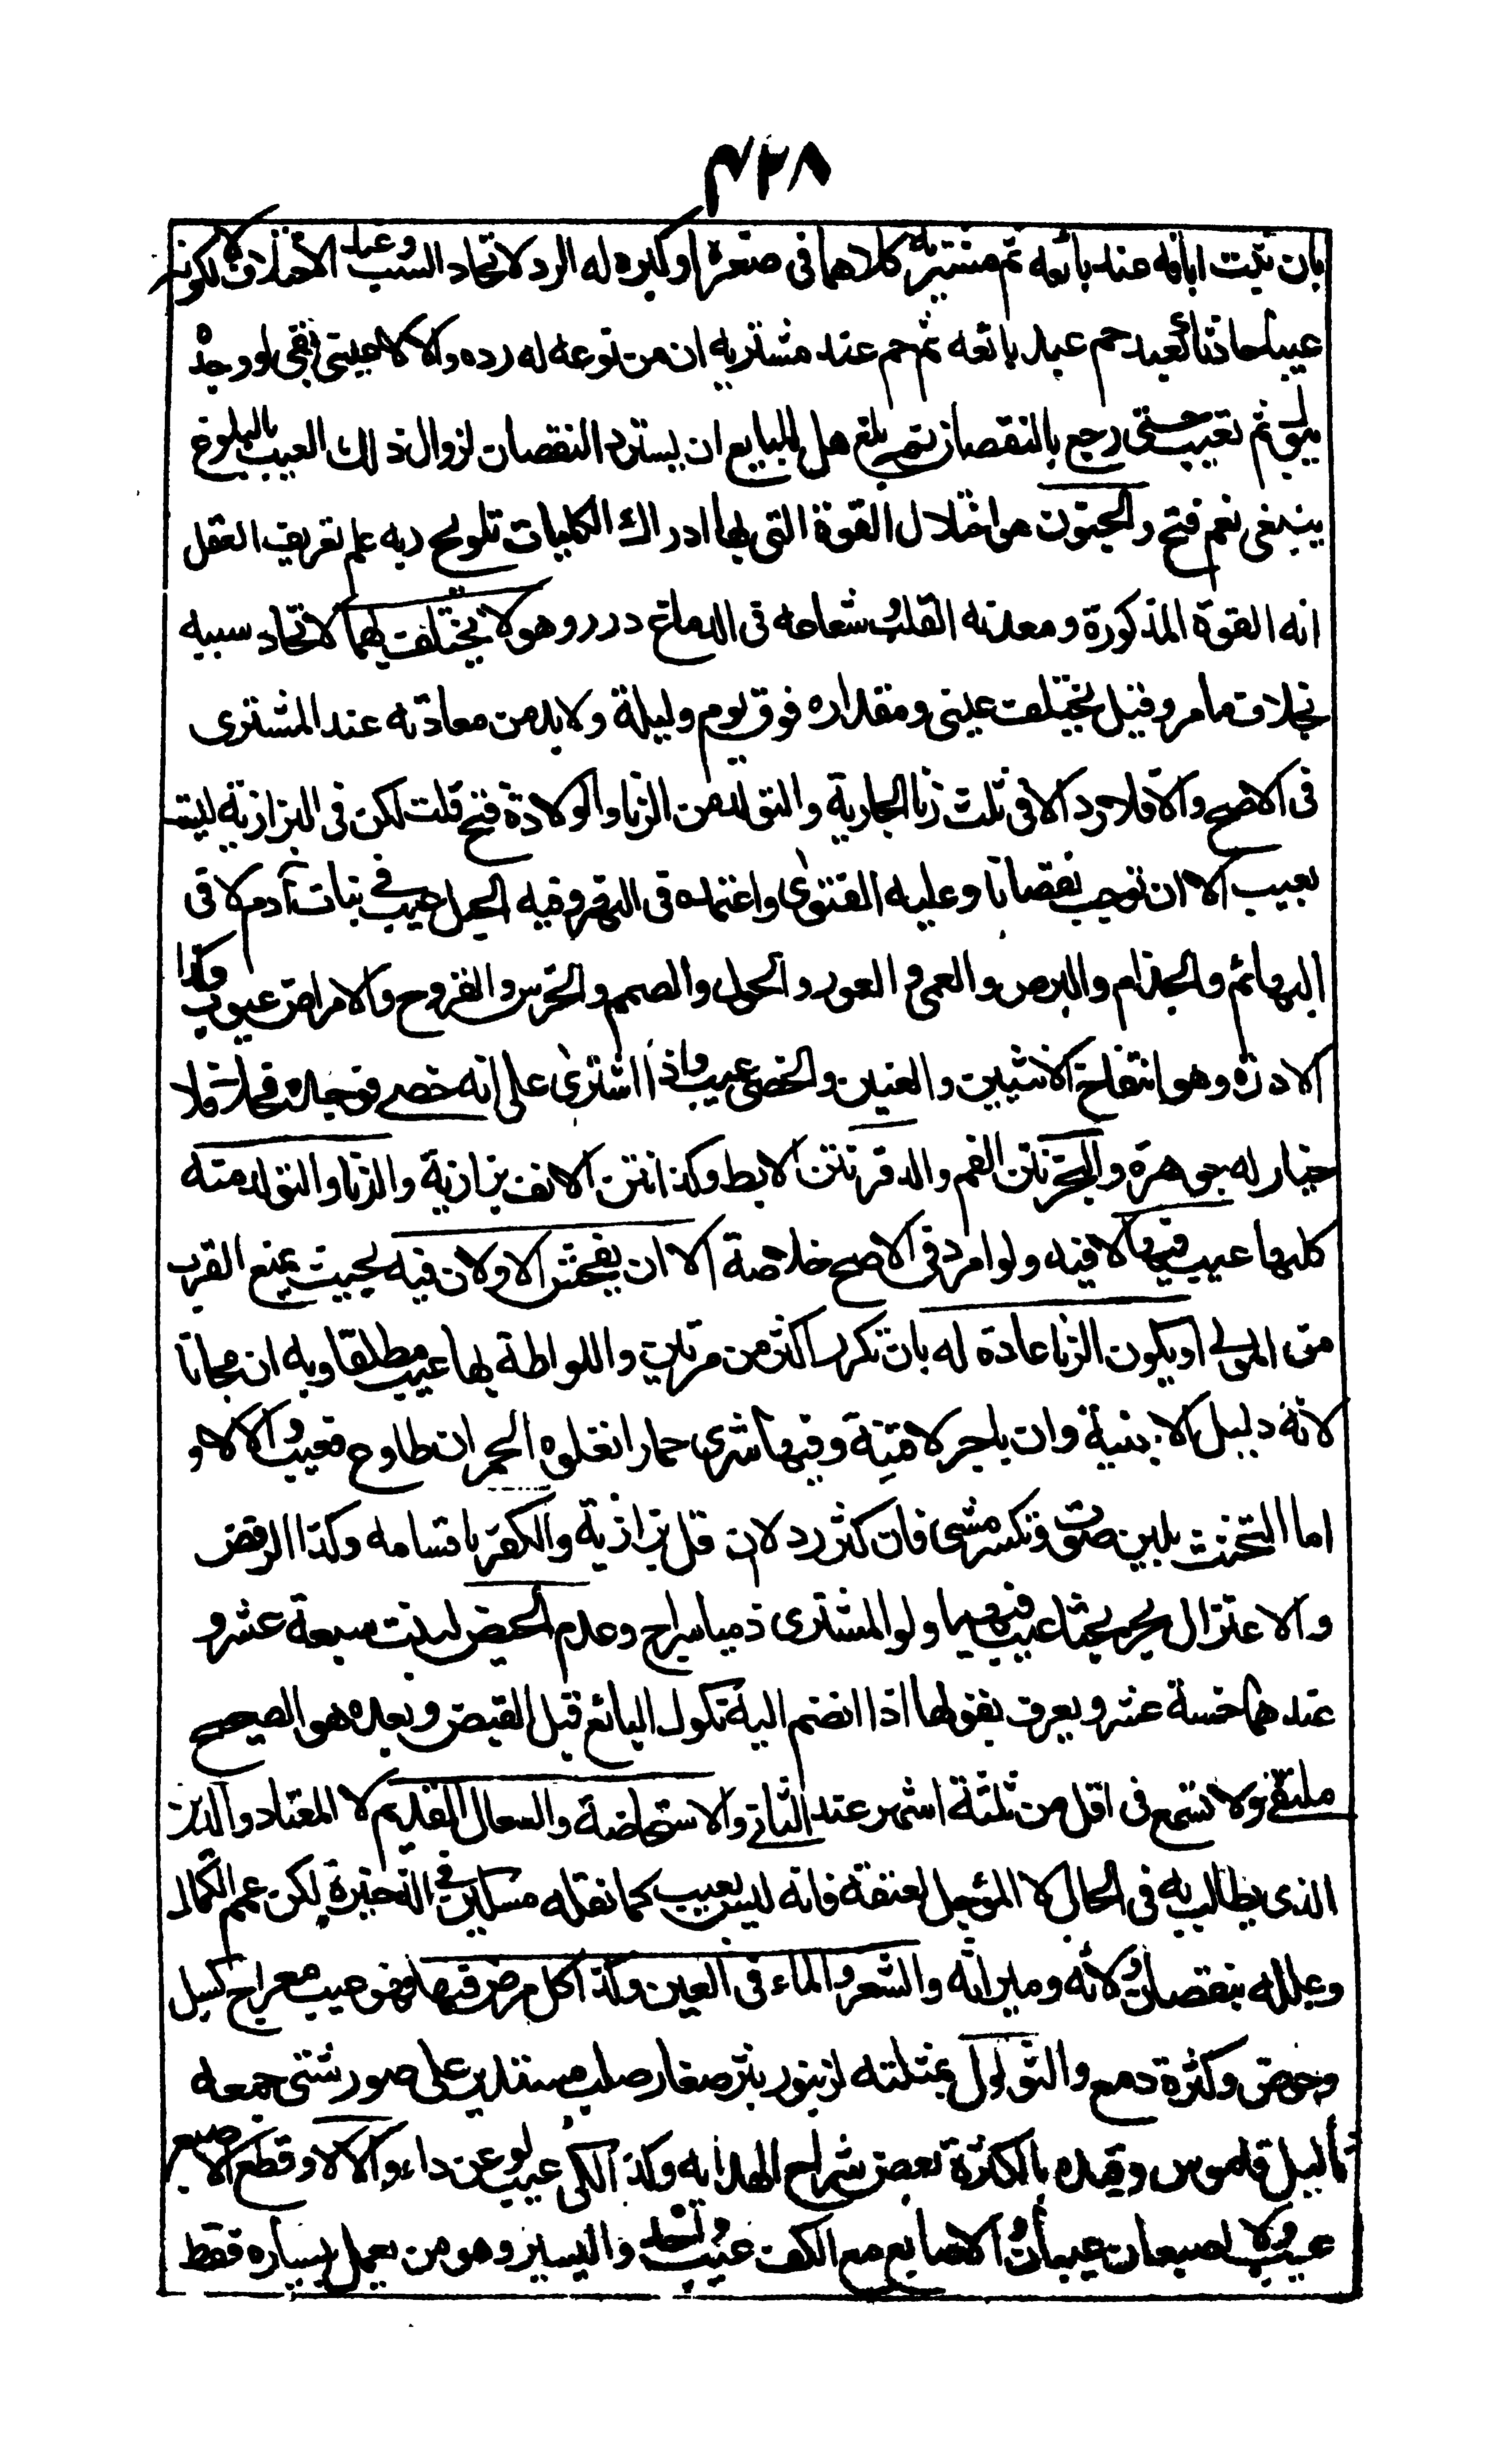 ٤٣٨
بان ثبت اباقه عند بائعه ثم مشتريه كلاهما فى صغره او كبره له الرد لاتحاد السبب وعند الاختلاف لا لكونه
عيبا حادثا كعبد حم عند بائعه ثم حم عند مشتريه ان من نوعه له رده والا لا عينى بقى لو وجده
يبول ثم تعيب حتى رجع بالنقصان ثم بلغ هل للبايع ان يسترد النقصان لزوال ذلك العيب بالبلوغ
ينبغى نعم فتح والجنون هو اختلال القوة التى بها ادراك الكليات تلويح وبه علم تعريف العقل
انه القوة المذكورة ومعدنه القلب وشعاعه فى الدماغ درر وهو لا يختلف بهما لاتحاد سببه
بخلاف ما مر وقيل يختلف عينى ومقداره فوق يوم وليلة ولابد من معاودته عند المشترى
فى الاصح والا فلا رد الا فى ثلث زنا الجارية والتولد من الزنا والولادة فتح قلت لكن فى البزازية ليست
بعيب الا ان توجب نقصانا وعليه الفتوى واعتمده فى النهر وفيه الحبل عيب فى بنات آدم لا فى
البهائم والجذام والبرص والعمى والعور والحول والصمم والخرس والقروح والامراض عيوب وكذا
الادرة وهو انتفاخ الانثيين والعنين والخصى عيب واذا اشترى على انه خصى فوجده فحلا فلا
خيار له جوهرة والبخر نتن الفم والدفر نتن الابط وكذا نتن الانف بزازية والزنا والتولد منه
كلها عيب فيها لا فيه ولو امرد فى الاصح خلاصة الا ان يفحش الاولان فيه بحيث يمنع القرب
من المولى او يكون الزنا عادة له بان تكرر اكثر من مرتين واللواطة بها عيب مطلقا وبه ان مجانا
لانه دليل الابنة وان باجر لا قنية وفيها شرى حمارا تعلوه الحمر ان طاوع فعيب والا لا و
اما التخنث بلين صوت وتكسر مشى فان كثر رد لا ان قل بزازية والكفر باقسامه وكذا الرفض
والاعتزال بحر بحثا عيب فيهما ولو المشترى ذميا سراج وعدم الحيض لبنت سبعة عشر و
عندهما خمسة عشر ويعرف بقولها اذا انضم اليه نكول البائع قبل القبض وبعده هو الصحيح
ملتقى ولا تسمع فى اقل من ثلثة اشهر عند الثانى والاستحاضة والسعال القديم لا المعتاد والدين
الذى يطالب به فى الحال لا المؤجل لعتقه فانه ليس بعيب كما نقله مسكين فى الذخيرة لكن عمم الكمال
وعلله بنقصان ولائه وميراثه والشعر والماء فى العين وكذا كل مرض فيها فهو عيب معراج كسبل
وحوص وكثرة دمع والثؤلول بمثلثة كزنبور بثر صغار صلب مستدير على صور شتى جمعه
ثآليل قاموس وقيده بالكثرة بعض شراح الهداية وكذا الكى عيب لو عن داء والا لا وقطع الاصبع
عيب والاصبعان عيبان والاصابع مع الكف عيب واحد واليسير وهو من يعمل بيساره فقط